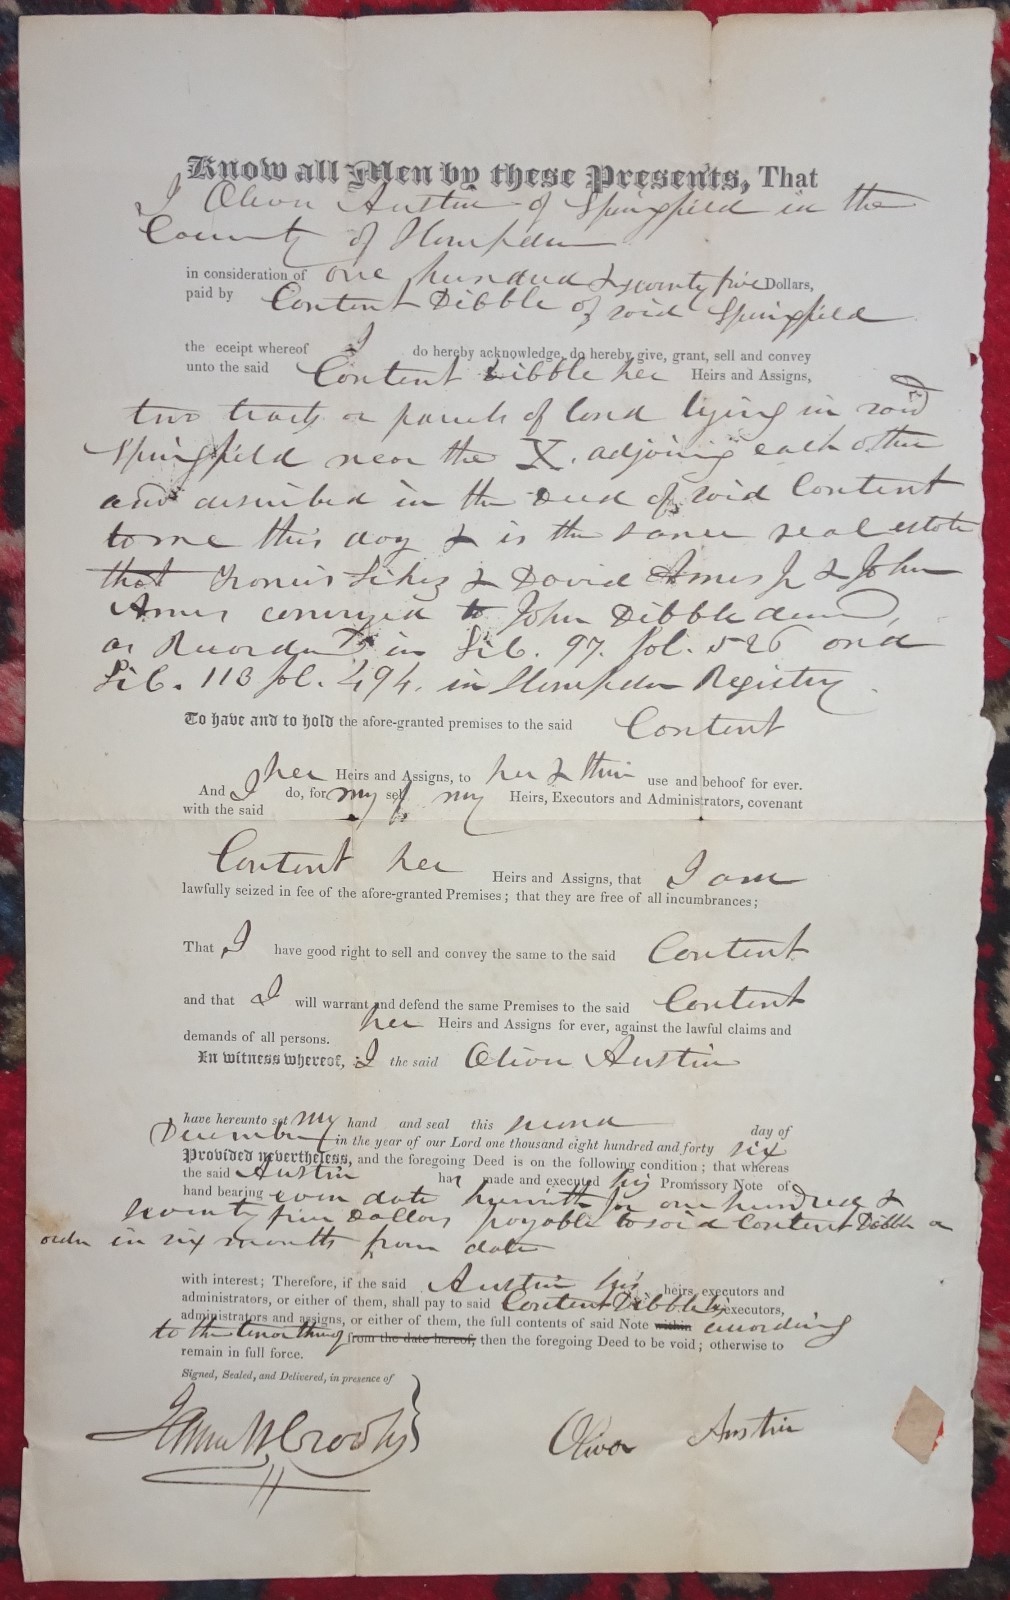 Know all Men by these Presents, That
I Oliver Austin of Springfield in the
County of Hampden
in consideration of one hundred & seventy five Dollars,
paid by Content Dibble of said Springfield
the eceipt whereof I do hereby acknowledge, do hereby give, grant, sell and convey
unto the said Content Dibble her Heirs and Assigns,
two tracts or parcels of land lying in said
Springfield near the X. adjoining each other
and described in the Deed of said Content
to me this day & is the same real estate
that Francis Sikes & David Ames Jr & John
Ames conveyed to John Dibble
as Recorded in Lib. 97. fol. 526 and
Lib. 113 fol. 494. in Hampden Registry.
To have and to hold the afore-granted premises to the said Content
her Heirs and Assigns, to her & their use and behoof for ever.
And I do, for my self my Heirs, Executors and Administrators, covenant
with the said
Content her Heirs and Assigns, that I am
lawfully seized in fee of the afore-granted Premises; that they are free of all incumbrances;
That I have good right to sell and convey the same to the said Content
and that I will warrant and defend the same Premises to the said Content
her Heirs and Assigns for ever, against the lawful claims and
demands of all persons.
In witness whereof, I the said Oliver Austin
have hereunto set my hand and seal this second day of
December in the year of our Lord one thousand eight hundred and forty six
Provided nevertheless, and the foregoing Deed is on the following condition; that whereas
the said Austin has made and executed his Promissory Note of
hand bearing even date herewith for one hundred &
seventy five Dollars payable to said Content Dibble or
order in six months from date
with interest; Therefore, if the said Austin his heirs, executors and
administrators, or either of them, shall pay to said Content Dibble executors,
administrators and assigns, or either of them, the full contents of said Note within according
to the tenor thereof from the date hereof, then the foregoing Deed to be void; otherwise to
remain in full force.
Signed, Sealed, and Delivered, in presence of
James W Crooks
Oliver Austin